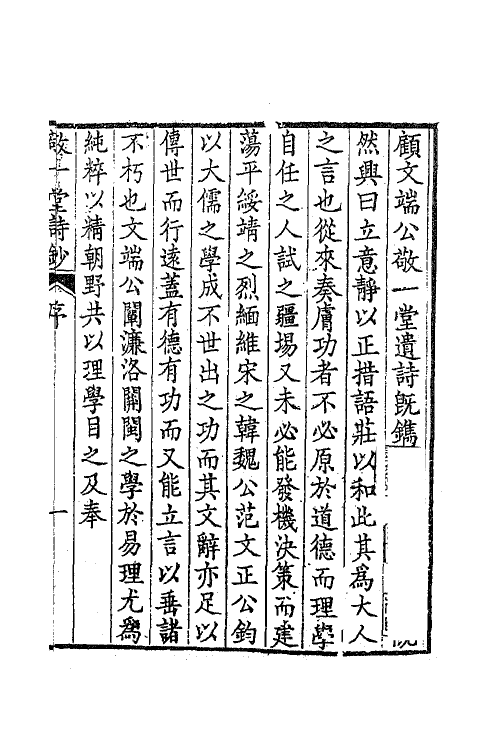 顧文端公敬一堂遺詩旣鐫
然興曰立意靜以正措語莊以和此其爲大人
之言也從來奏膚功者不必原於道德而理學
自任之人試之疆場又未必能發機決策而建
蕩平綏靖之烈緬維宋之韓魏公范文正公鈞
以大儒之學成不世出之功而其文辭亦足以
傳世而行遠蓋有德有功而又能立言以垂諸
不朽也文端公闡濂洛關閩之學於易理尤爲
純粹以精朝野共以理學目之及奉
敬一堂詩鈔 序 一